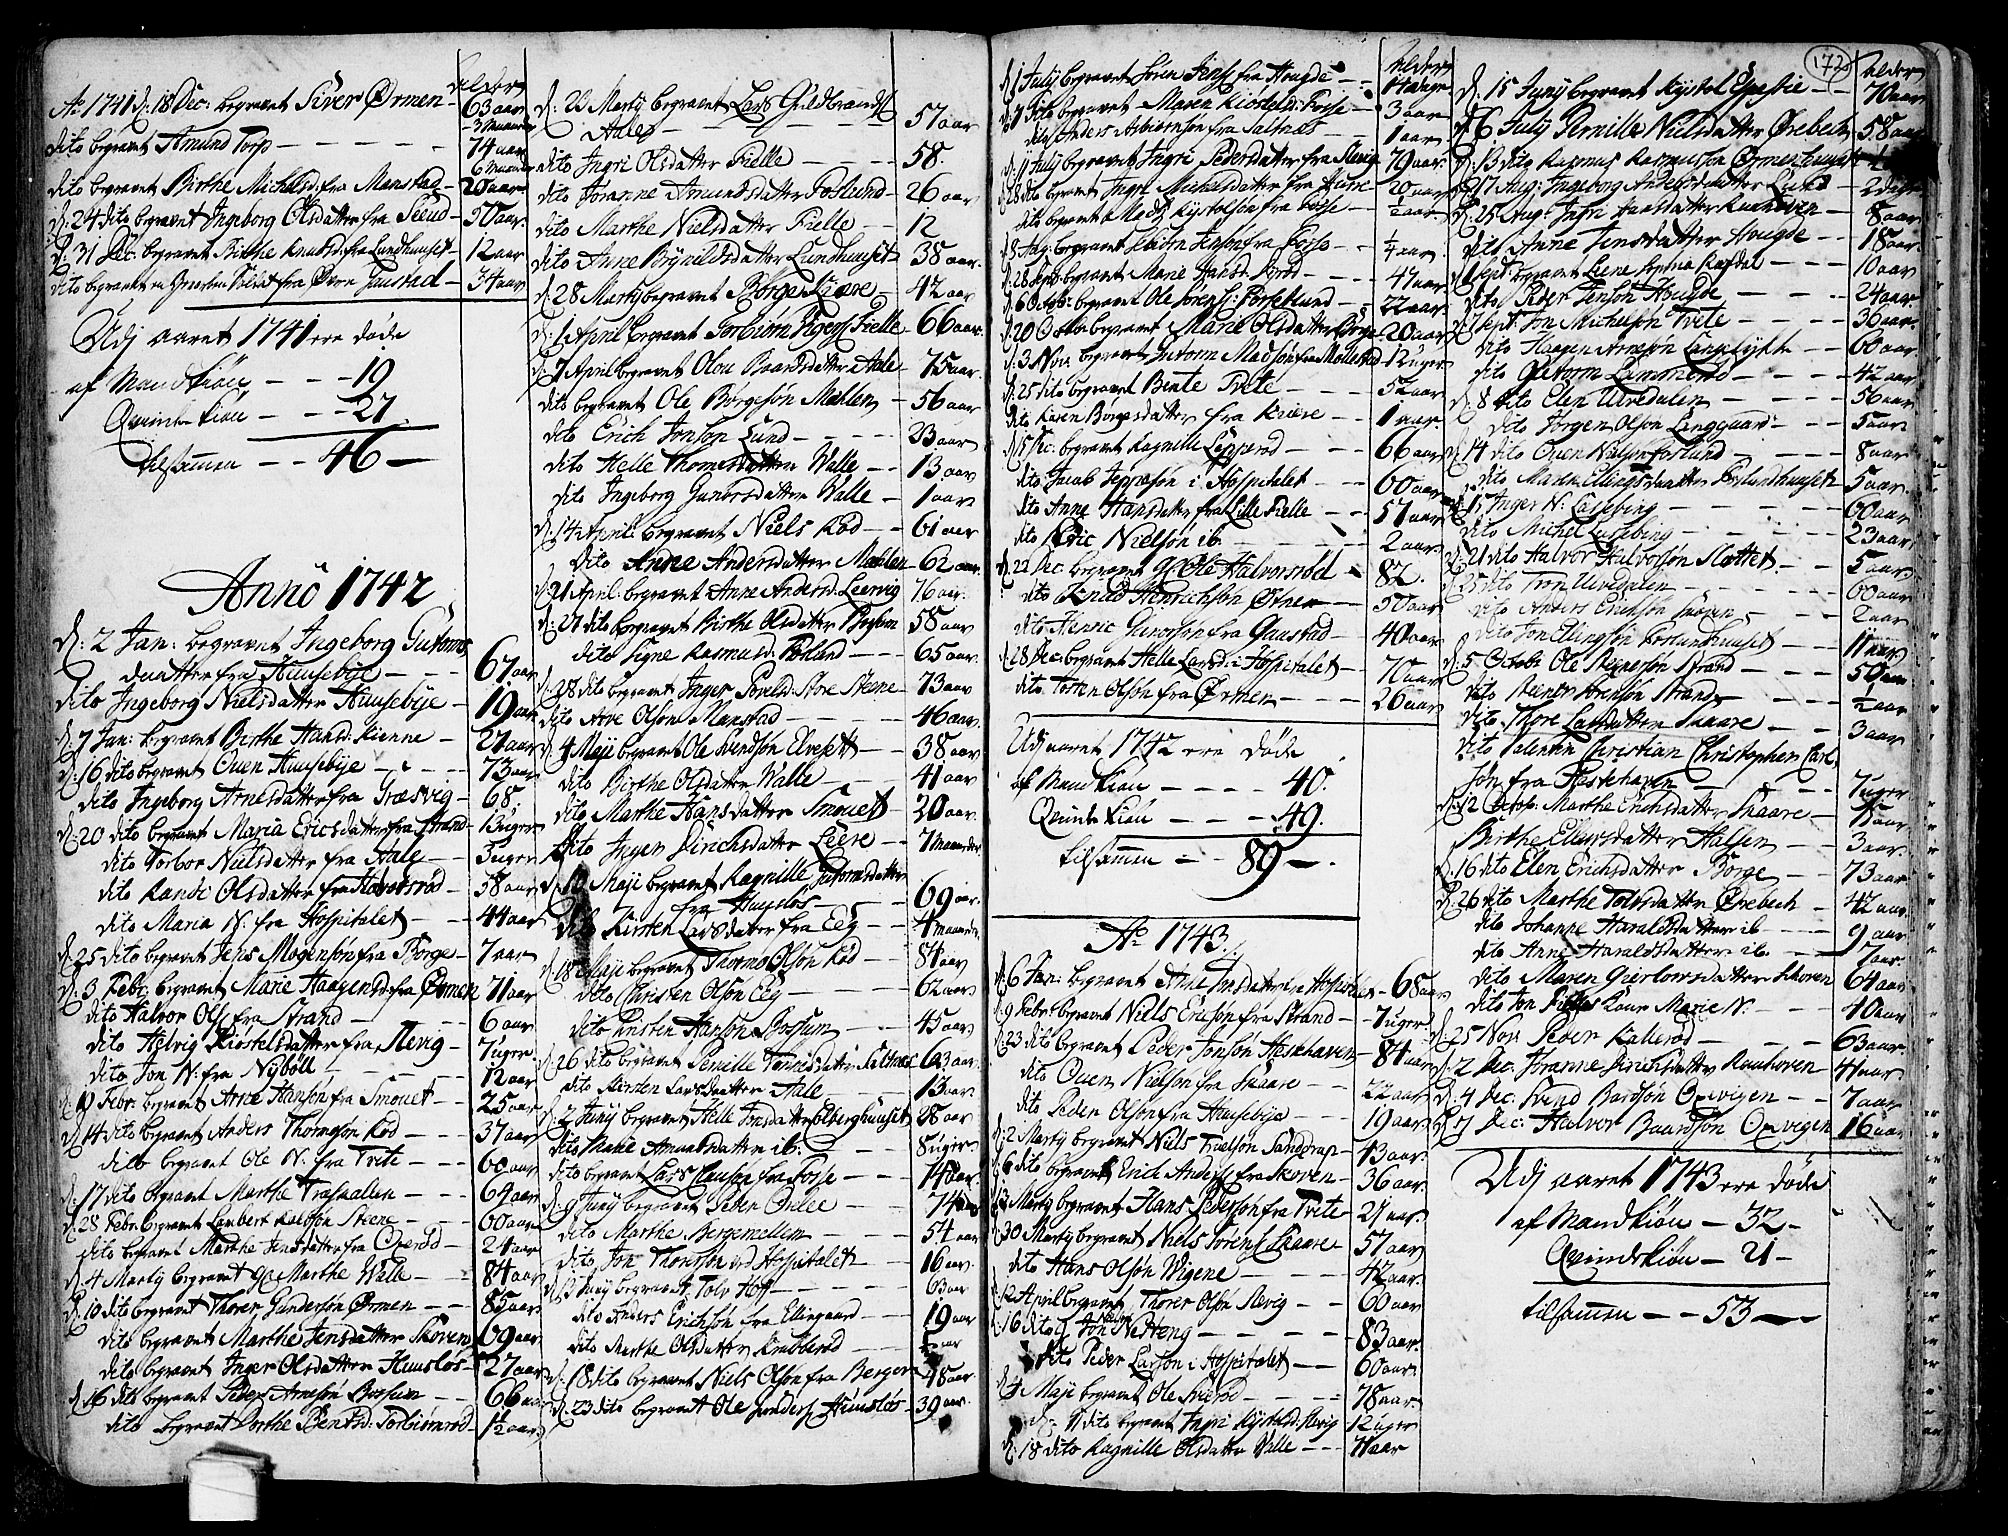 Alder
Aō 1741 d: 18 Dec: begravet Siver Ørmen - 63 aar 3 Maaneder
dito begravet Amund Torp - - - - - 74 aar 6 Maaneder
dito begravet Birthe Michelsd: fra Manstad - 20 aar
d: 24 dito begravet Ingeborg Olsdatter fra - 50 aar
d: 31 Dec: begravet Birthe Knudsd: fra Lundhuuset - 12 aar
dito begravet en fra Øvre Gaustad - 34 aar
Udj aaret 1741 ere døde
af Mandkiøn - - - 19
Qvindekiøn - - - 27
tilsammen - - 46 -
Annō 1742
d: 2 Jan: begravet Ingeborg Guttorms
daatter fra Huusebije - - - 67 aar
dito Ingeborg Nielsdatter Huusebije - 19 aar
d: 7 Jan: begravet Birthe Hansd: Kienne - 27 aar
d: 16 dito begravet Ouen Huusebije - - - 73 aar
dito Ingeborg Arnesdatter fra Græsvig - 68
d: 20 dito begravet Maria Ericsdatter fra Strand - 13 uger
dito Torbor Nielsdatter fra Aale - - 3 uger
dito Randi Olsdatter fra Halvorsrød - 58 aar
dito Maria N: fra Hospitalet - - 44 aar
d: 25 dito begravet Jens Mogensøn fra Borge - 7 aar
d: 3 Febr: begravet Marie Haagensd: fra Ørmen 71 aar
dito Halvor Ols: fra Strand - - 6 aar
dito Helvig Kiostelsdatter fra Slevig - 7 uger
dito Jon N: fra Nybøll - - - 12 aar
d: 9 Febr: begravet Arne Hansøn fra Smouet - - 25 aar
d: 14 dito begravet Anders Thomesøn Rød - - 37 aar
dito begravet Ole N: fra Tvite - - - 60 aar
d: 17 dito begravet Marthe Træskalen - - 64 aar
d: 28 Febr: begravet Lambert Steene - - 60 aar
dito begravet Marthe Jensdatter fra Ouerød - - 24 aar
d: 4 Martij begravet Marthe Walle - - 84 aar
d: 10 dito begravet Thorer Gundersøn Ørmen - - 85 aar
dito begravet Marthe Jensdatter Skoven 69 aar
dito begravet Inger Olsdatter Huusløs - 27 aar
d: 16 dito begravet Peder Arnesøn Bossum - - 66 aar
dito begravet Dorthe Bentsd: Torbiørnrød - 1½ aar
d: 23 Martij begravet Lars Guldbrands:
Aale - - - - 57 aar
dito Ingri Olsdatter Fielle - - - 58
dito Joranne Amundsdatter Foslund - 26 aar
dito Marthe Nielsdatter Fielle - - 12
dito Anne Brynildsdatter Lundhuuset - 38 aar
d: 28 Martij begravet Børge Kiære - 42 aar
d: 1 April begravet Torbiørn Fielle - 66 aar
d: 7 April begravet Olou Baardsdatter Aale - 75 aar
dito begravet Ole Børgesøn Møklen - 56 aar
dito Erich Jonsøn Lund - - - 23 aar
dito Helle Thomesdatter Walle - - 13 aar
dito Ingeborg Gunorsdatter Walle - 1 aar
d: 14 April begravet Niels Rød - - 61 aar
dito Anne Andersdatter Møklen - 62 aar
d: 21 April: begravet Anne Andersd: Leervig 76 aar
d: 27 dito begravet Birthe Olsdatter Bossum 58 aar
dito Signe Rasmusd: Foslund - - - 65 aar
d: 28 dito begravet Inger Store Steene - 73 aar
dito Arve Olsøn Manstad - - - - 46 aar
d: 4 Maje begravet Ole Svendsøn Elveset - - 38 aar
dito Birthe Olsdatter Walle - - - 41 aar
dito Marthe Hansdatter Smouet - - 20 aar
dito Inger Dirichsdatter Leere - - 7 Maaneder
Maje begravet Ragnille Guttormsdatter
fra Huusløs - - - 69 aar
dito Kirsten Larsdatter fra Eeg - - 4 maaneder
d: 18 Maje begravet Thormo Olsøn Rød - - 84 aar
dito Christen Olsøn Eeg - - - - 62 aar
dito Kirsten Hansøn Bossum - - 45 aar
d: 26 dito begravet Pernille Tønnesdatter Saltnæs 63 aar
dito Kirsten Larsdatter Aale - - 13 aar
d: 2 Junij begravet Helle Jensdatter Elberghuuset 28 aar
dito Marie Amundsdatter ib: - - - 8 uger
dito begravet Lars Clausen fra Fosse - - 14 aar
d: 9 Junij begravet Peder Onsøe - - 74 aar
dito Marthe Bergemellem - - 54 aar
dito Jon Thoresøn ved Hospitalet - - 16 aar
d: 13 Junij begravet Tolv Hoff - - - 63 aar
dito Anders Erichsøn fra Ellingaard - - 19 aar
dito Marthe Olsdatter Krabberød - - ½ aar
d: 18 dito begravet Niels Olsøn fra Berger 48 aar
d: 23 dito begravet Ole Huusløs - 39 aar
Alder
d: 1 Julij begravet Søren Jens: fra Hougde - - 14 dage
d: 7 dito begravet Maren Kiostelsd: Fosse - - 3 aar
dito Anders Asbiørnsøn fra Saltnæs - - 1 aar
d: 11 Julij begravet Ingri Pedersdatter fra Slevig 79 aar
d: 28 dito begravet Ingri Michelsdatter fra Kiære - 20 aar
dito begravet Mads Kystolsøn fra Fosse - - ½ aar
d: 18 Aug: begravet Jensøn fra Fosse - - ¼ aar
d: 28 Sept: begravet Marie Hansd: Brød - - 47 aar
d: 6 Octob: begravet Ole Sørens: Foslund - - 22 aar
d: 20 Octobr begravet Marie Olsdatter Børge - 20 aar
d: 3 Nov: begravet Guttorm Madsøn fra Mollestad - 12 uger
d: 25 dito begravet Bente Tvete - - - 52 aar
dito Karen Børgesdatter fra Kiære - - 1 aar
d: 15 Dec: begravet Ragnille Lepperød - - 66 aar
dito Jacob Jeppesøn i Hospitalet - - 60 aar
dito Anne Hansdatter fra Lille Fielle - - 57 aar
dito Nielsøn ib - - - - 2 aar
d: 22 Dec: begravet Ole Halvorsrød - 82.
dito Knud Henrichsøn Ørmen - - - 50 aar
dito Henric Gunorsøn fra Gaustad - - 40 aar
d: 28 Dec: begravet Helle Larsd: i Hospitalet - - 70 aar
dito Tosten Olsøn fra Ørmen - - - 26 aar
Udj aaret 1742 ere døde
af Mandkiøn - - - - 40.
Qvindekiøn - - - - 49.
tilsammen - - 89 -.
Aō 1743.
d: 6 Jan: begravet Anne Jensdatter fra Hospitalet - 68 aar
d: 9 Febr begravet Niels Ericsøn fra Strand - - 7 uger
d: 23 dito begravet Peder Jonsøn Heskehaven - 84 aar
dito Ouen Nielsøn fra Skaare - - 22 aar
dito Peder Olsøn fra Huusebije - - - 19 aar
d: 2 Martij begravet Niels Trulsøn Sanddrap - 13 aar
d: 6 dito begravet Erich Anders: fra Skoven - 36 aar
d: 13 Martij begravet Hans Pedersøn fra Tvite - 21 aar
d: 30 Martij begravet Niels Sørens: Skaare - - 57 aar
dito Hans Olsøn Wigene - - - 42 aar
d: 12 April begravet Thorer Olsøn Slevig - - 60 aar
d: 16 dito Jon Nedteng - - - - 83 aar
dito Peder Larsøn i Hospitalet - - 60 aar
d: 4 Maje begravet Ole - - - 78 aar
d: 11 dito begravet Ingri Kystolsd: Slevig - 12 uger
d: 18 dito Ragnille Olsdatter Walle - - - 71 aar
172
Alder
d: 15 Junij begravet Kystol - - 70 aar
d: 6 Julij Pernille Nielsdatter Ørebech 58 aar
d: 13 dito Rasmus Rasmusøn Ørmenhuuset
d: 17 Aug: Ingeborg Andersdaatter Lund -
d: 25 Aug: Ingri Hansdatter Kuuhoven - - 8 aar
dito Anne Jensdatter Hougde - - 18 aar
d: 1 Sept: begravet Leene - - 10 aar
dito Peder Jensøn Hougde - - - 24 aar
d: 7 Sept: Jon Michelsøn Tvite - - - 36 aar
dito Haagen Arnesøn - 60 aar
dito Guttorm - - - - 42 aar
d: 8 dito Elen Ulvedalen - - - - 56 aar
dito Jørgen Olsøn Langgaard - - 5 aar
d: 14 dito Ouen Nielsøn Foslund - - - 8 aar
dito Maren Ellingsdaatter Foslundhuuset - 5 aar
d: 15 Inger N: Lasseberg - - - - 60 aar
dito Michel Lasseberg - - - - 23 aar
d: 21 dito Halvor Halvorsøn Slettet - - 5 aar
d: 25 dito Tron Ulvedalen - - - - 60 aar
dito Anders Erichsøn Skoven - - - 2 aar
dito Jon Ellingsøn Foslundhuuset - - 11 aar
d: 5 Octob: Ole Reinersøn Strand - - - 50 aar
dito Reiner Sørensøn Strand - - - ½ aar
dito Thore Larsdatter Skaare - - 3 aar
dito Valentin Christian Christopher Carl
søn fra Heskehaven - - - 7 uger
d: 12 Octob: Marthe Erichsdatter Skaare - - aar
Birthe Ellingsdatter Halsen - - 3 aar
d: 16 dito Elen Erichsdatter Borge - - 73 aar
d: 26 dito Marthe Tolvsdatter Ørebech - 42 aar
dito Johanne Haraldsdatter ib - - - 9 aar
dito Anne Haraldsdatter ib. - - - 7 aar
dito Maren Giertorsdatter Skoven 64 aar
dito Jon Marie N: - - - 40 aar
d: 25 Nov: Peder Kallerød - - - - 63 aar
d: 2 Dec: Joranne Dirichsdatter Kuuhoven - 41 aar
d: 4 Dec: Svend Bardsøn Opvigen - - 7 aar
d: 7 Dec: Halvor Baardsøn Opvigen 16 aar
Udj aaret 1743 ere døde
af Mandkiøn - 32 -
Qvindskiøn - 21 -
tilsammen - - 53 -